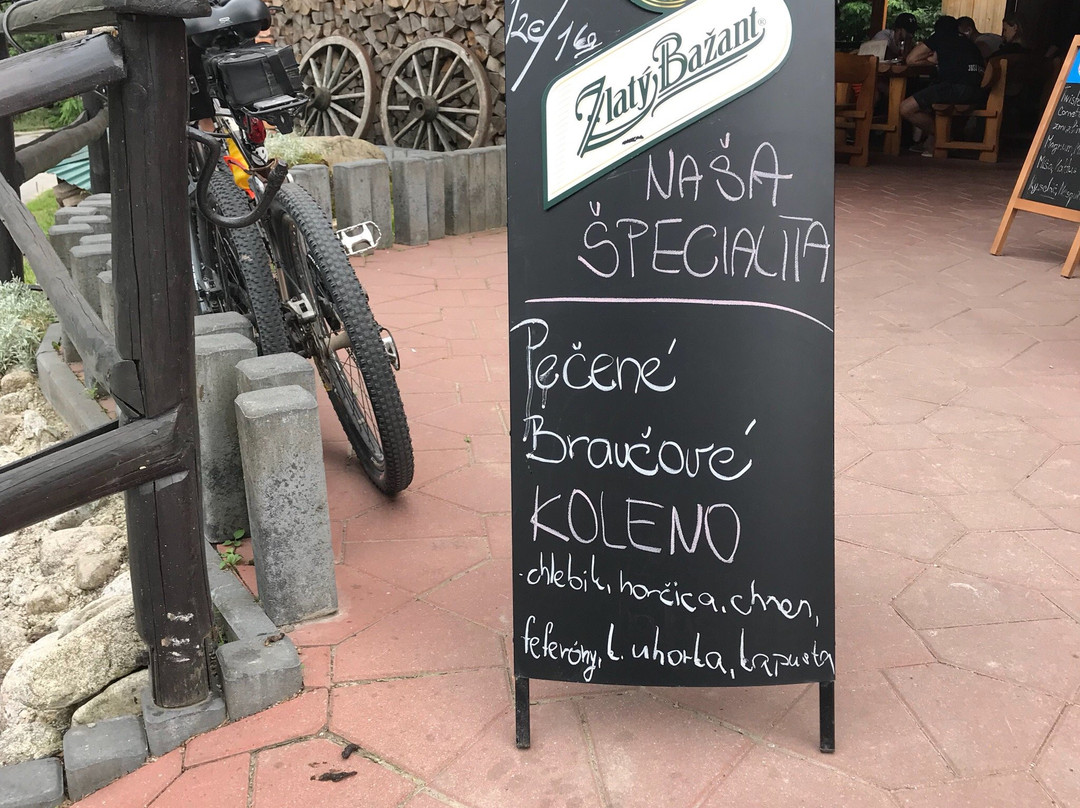 Zlatý Bažant®
NAŠA
ŠPECIALITA
Pečené
Bravčové
KOLENO
chlebík, horčica, chren,
feferóny, k. uhorka, kapusta